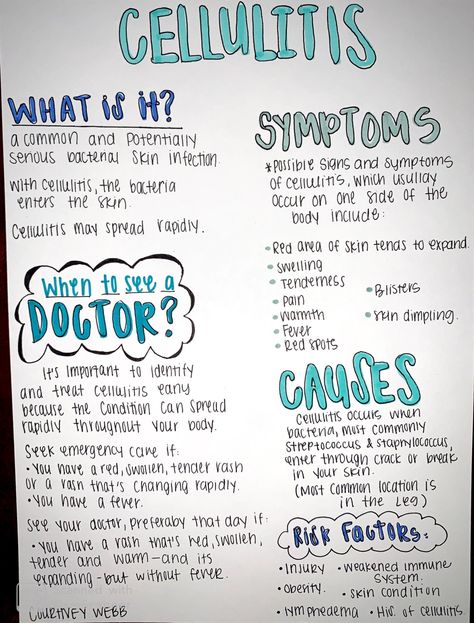 CELLULITIS
WHAT IS IT?
a common and potentially
serious bacterial skin infection.
With cellulitis, the bacteria
enters the skin.
Cellulitis may spread rapidly.
When to see a
DOCTOR?
It's important to identify
and treat cellulitis early
because the condition can spread
rapidly throughout your body.
Seek emergency care if:
• You have a red, swollen, tender rash
or a rash that's changing rapidly.
• You have a fever.
See your doctor, preferably that day if:
• You have a rash that's red, swollen,
tender and warm-and its
expanding-but without fever.
COURTNEY WEBB
SYMPTOMS
*Possible signs and symptoms
of cellulitis, which usually
occur on one side of the
body include:
• Red area of skin tends to expand.
• swelling
• Tenderness
• Pain
• Warmth
• Fever
• Red spots
• Blisters
• skin dimpling.
CAUSES
Cellulitis occurs when
bacteria, most commonly
streptococcus & staphylococcus,
enter through crack or break
in your skin.
(Most common location is
in the leg)
RISK FACTORS:
• Injury
• Obesity.
• lymphedema
• weakened immune
system.
• skin condition
• Hix. of cellulitis.